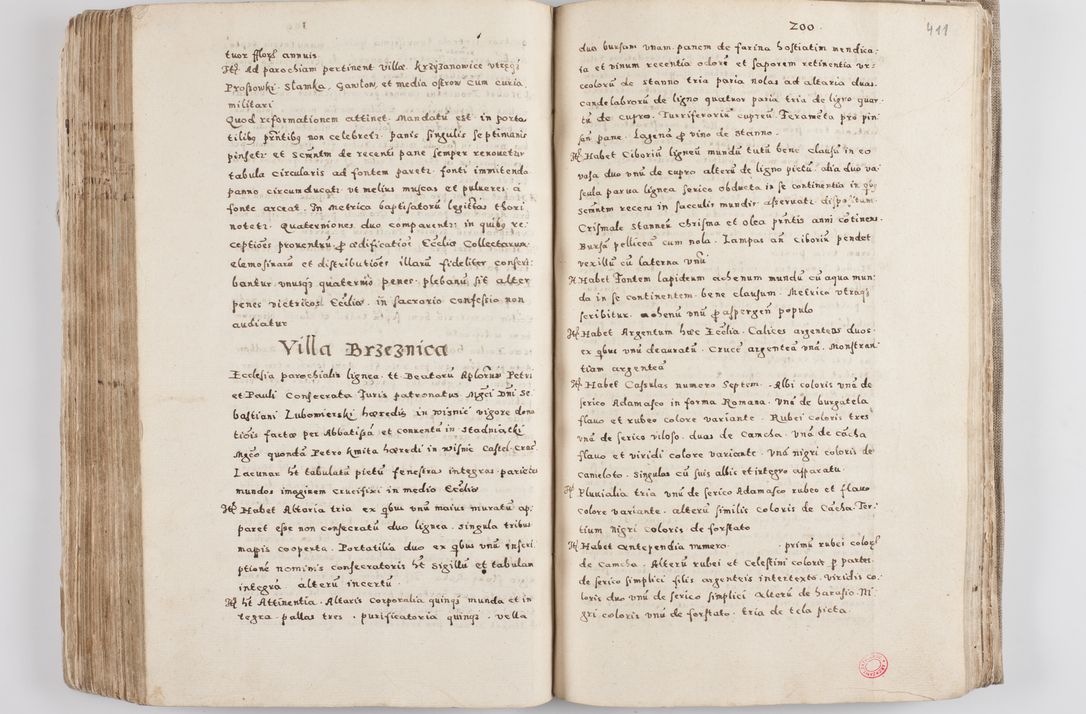 tuor fflorꝭ annuis
Itꝫ Ad parochiam pertinent villæ Krzyzanowice vtreqꝫ
Prosſowki · Slamka · Gawlow, et media ostrow cum curia
militari
Quod reformationem attinet. Mandatū est in porta
tilibꝫ pn̄tibꝫ non celebretꝛ. panis singulis septimanis
pinsetꝛ et Scm̄ntm de recenti pane semper renouetꝛ
tabula circularis ad fontem paretꝛ. fonti immitendo
panno circumducatꝛ vt melius muscas et pulueres à
fonte arceat. In metrica baptisatorū legittimi thori
notetꝛ. Quaterniones duo comparentꝛ in quibꝫ re
ceptiões prouentuū ꝓ ædificatiõe Eccliæ Collectarum
elemosinarū et distributiões illarū fideliter conscri:
bantur. vnusqꝫ quaternio penes. plebanū sit alter
penes victricos Eccliæ. in sacrario confessio non
audiatur
Villa Brzeznica
Ecclesia parochialis lignea. tt Beatorū Aplorum Petri
et Pauli Consecrata Iuris patronatus. Mgci Dn̄i Se
bastiani Lubomierski hæredis in wisnic vigore dona
tiõis factæ per Abbatissā et conuentū in Staniatki
Mgco quondā Petro Kmita hæredi in wisnic Castel. Crac.
Lacunar ht tabulatā pictū fenestras integras parietes
mundos imaginem crucifixi in medio Eccliæ
Itꝫ Habet Altaria tria ex qbus vnū maius muratū ap:
paret esse non consecratū duo lignea. singula tribus
mapis cooperta. Portatilia duo ex qbus vnū inscri
ptione nominis consecratoris ht Sigillū et tabulam
integrā alterū incertū.
Itꝫ ht Attinentia. Altaris Corporalia quinqꝫ munda et in
tegra. pallas tres. purificatoria quinqꝫ. vella
200.
411
duo bursam vnam. panem de farina hostiatim mendica
ta et vinum recentia odorē et saporem retinentia vr:
ceolorū de stanno tria paria nolas ad altaria duas.
candelabrorū de ligno quatuor paria tria de ligno quar
tū de cupro. Turriferariū cupreū. Ferameta pro pin
san pane. Lagenā ꝓ vino de stanno.
Itꝫ Habet Ciboriū ligneū mundū tutū bene clausū in eo
vasa duo vnū de cupro alterū de ligno pictū. alia duo va:
scula parua lignea serico obducta in se continentia in qbꝫ
Scm̄ntm recens in sacculis mundis asseruatꝛ dispositum.
Crismale stanneū chrisma et olea pn̄tis anni cōtinens.
Bursā pelliceā cum nola. Lampas an̄ Ciboriū pendet
vexillū cū laterna vnū
It Habet Fontem lapideum ahenum mundū cū aqua mun:
da in se continentem bene clausum. Metrica vtraqꝫ
scribitur. ahenū vnū ꝓ aspergen̄ populo
Itꝫ Habet Argentum hæc Ecclia. Calices argenteos duos.
ex qbus vnū deauratū. Crucē argenteā vnā. Monstran
tiam argenteā
Itꝫ Habet Casulas numero Septem. Albi coloris vnā de
serico Adamasco in forma Romana. Vnā de burgatela
flauo et rubeo colore variante. Rubei coloris tres
vnā de serico viloso. duas de Camcha. Vnā de cācha
flauo et viridi colore variante. Vnā nigri coloris de
cameloto. Singulas cū suis albis et integro apparatu.
Itꝫ Pluuialia tria vnū de serico Adamasco rubeo et flauo
colore variante. alterū similis coloris de Cācha. Ter:
tium nigri coloris de forstato
Itꝫ Habet antependia numero primū rubei colorꝭ
de Camcha. Alterū rubei et Celestini coloris ꝓ partes.
de serico simplici filis argenteis intertexto. viridis co:
loris duo vnū de serico simplici alterū de harasio. Ni
gri coloris vnū de forstato. tria de tela picta.